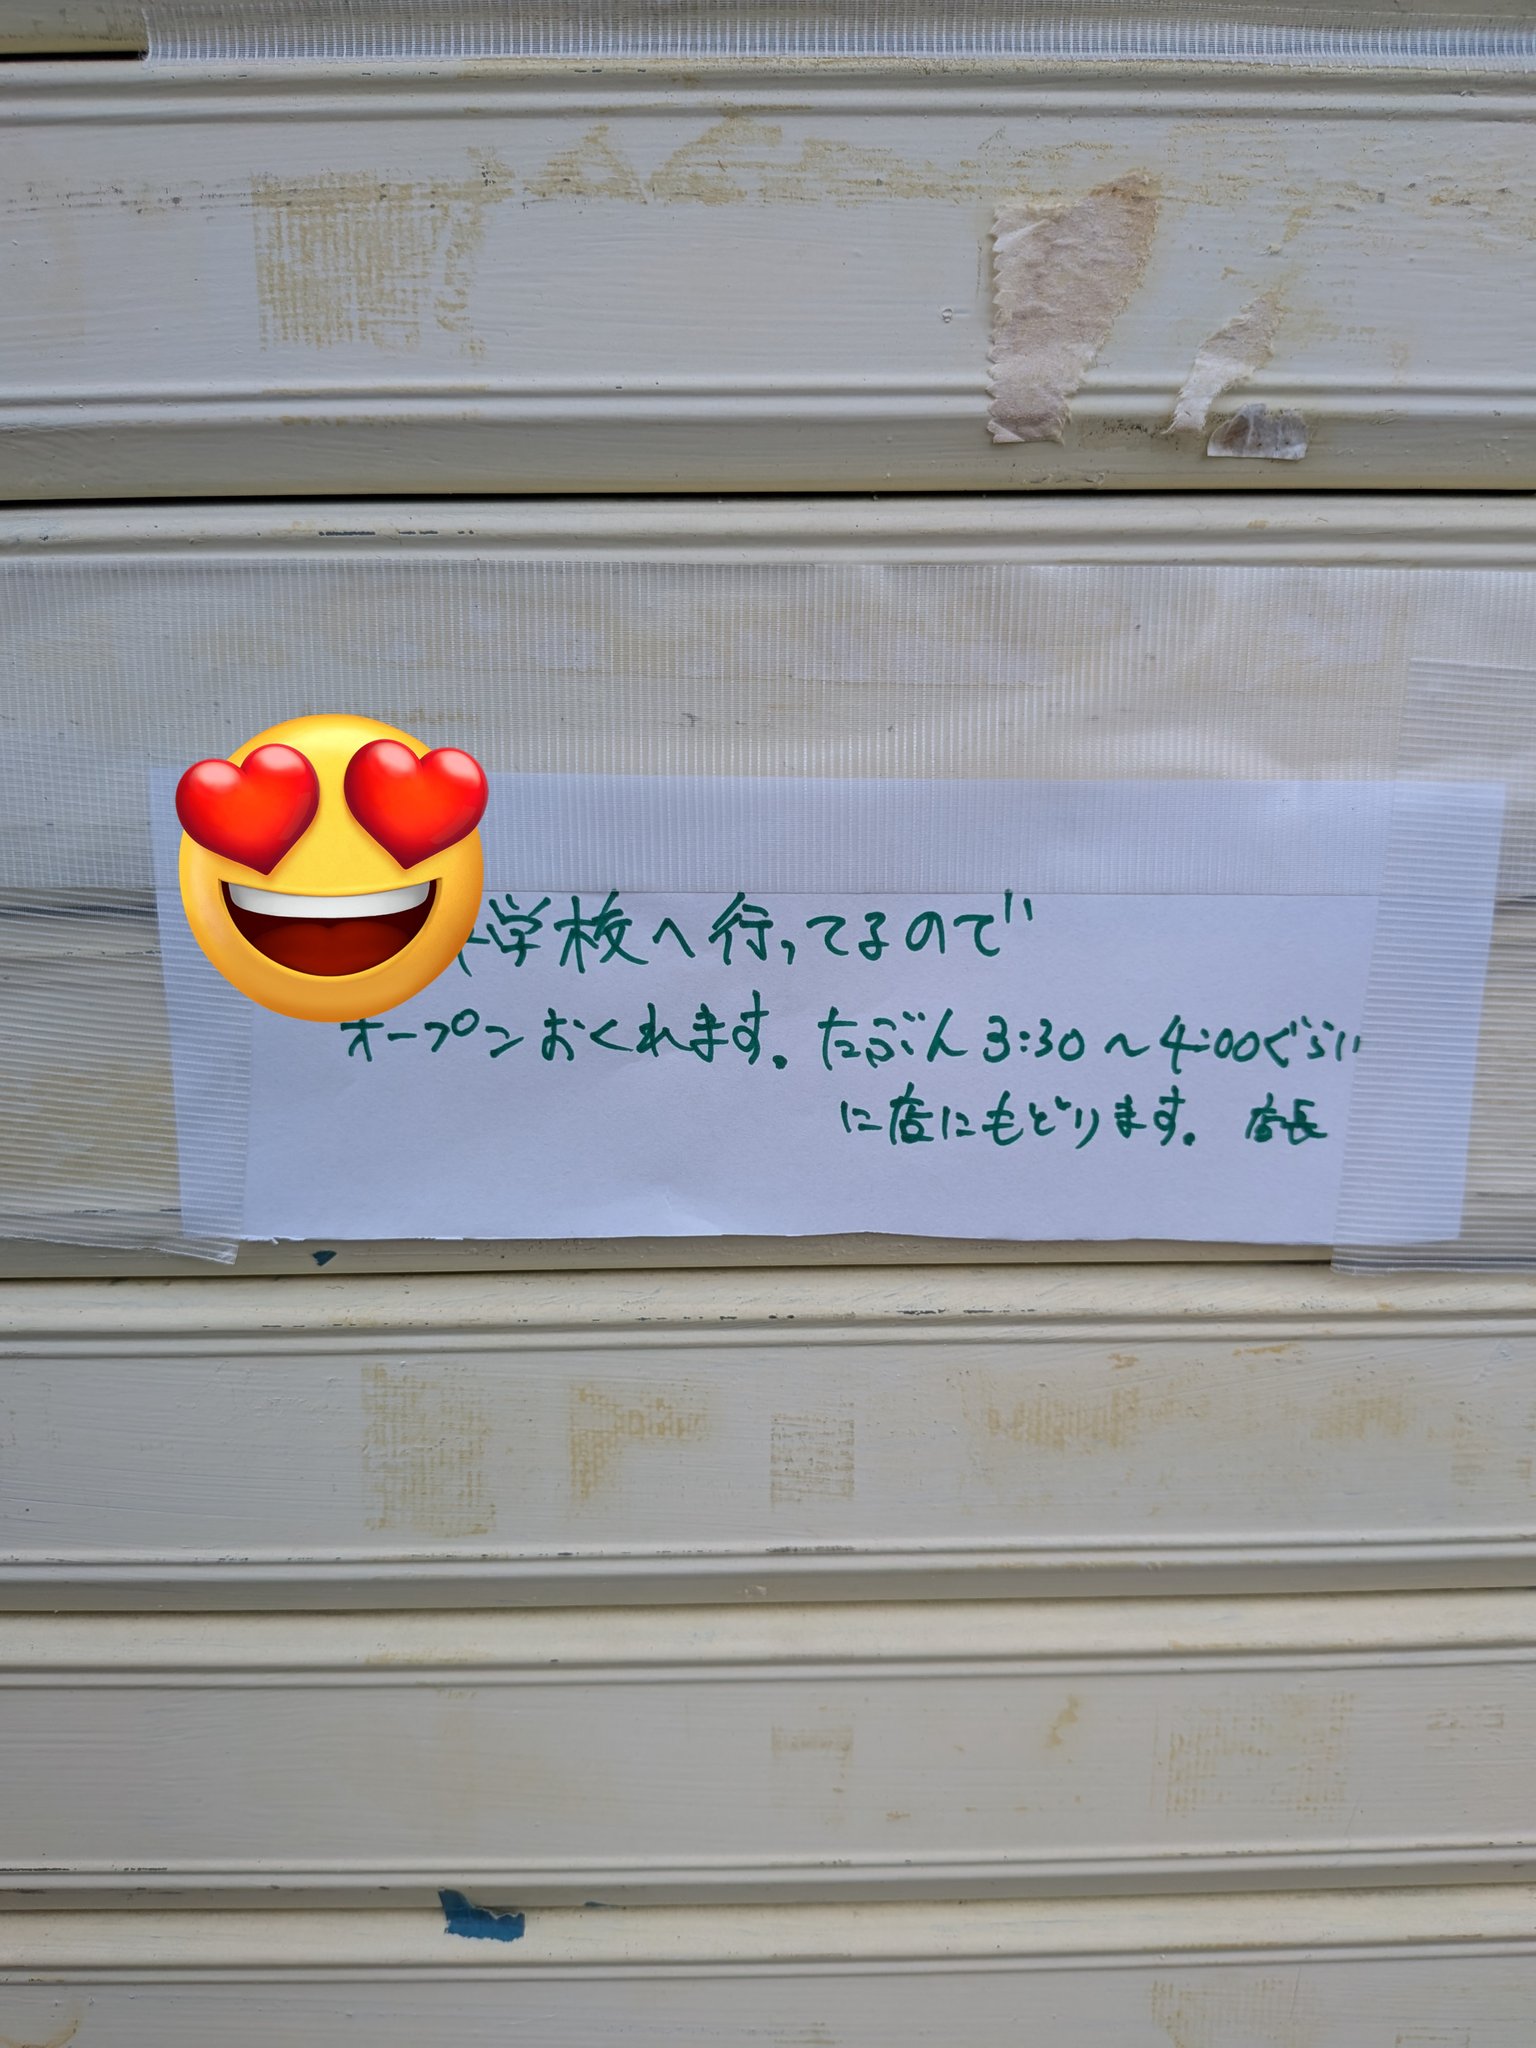 学校へ行ってるので
オープンおくれます。たぶん3:30～4:00ぐらい
に店にもどります。 店長